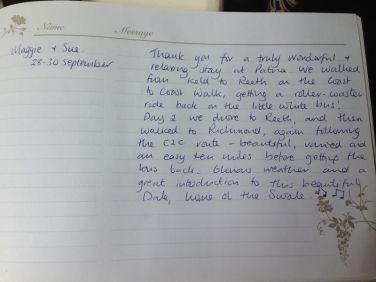 Name Message
Maggie + Sue.
28-30 September
Thank you for a truly wonderful +
relaxing stay at Patina. We walked
from Keld to Reeth on the Coast
to Coast Walk, getting a roller-coaster
ride back on the little white bus!
Day 2 we drove to Reeth, and then
walked to Richmond, again following
the C2C route - beautiful, varied and
an easy ten miles before getting the
bus back. Glorious weather and a
great introduction to this beautiful
Dale, home of the Swale